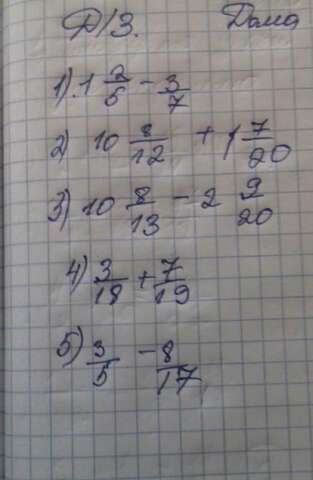 Д/З. Дома
1) 1 2/5 - 3/7
2) 10 8/12 + 1 7/20
3) 10 8/13 - 2 9/20
4) 3/18 + 7/19
5) 3/5 - 8/17